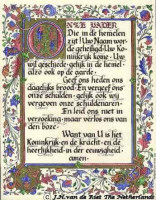 ONZE VADER
Die in de hemelen
zijt! Uw Naam wor-
de geheiligd Uw Ko-
ninkrijk kome. Uw
wil geschiede, gelijk in de hemel
alzo ook op de aarde.
Geef ons heden ons
dagelijks brood. En vergeef ons
onze schulden, gelijk ook wij
vergeven onze schuldenaren.
En leid ons niet in
verzoeking, maar verlos ons van
den boze.
Want van U is het
Koninkrijk en de kracht en de
heerlijkheid in der eeuwigheid
amen.
© J.H.van de Roet The Netherlands